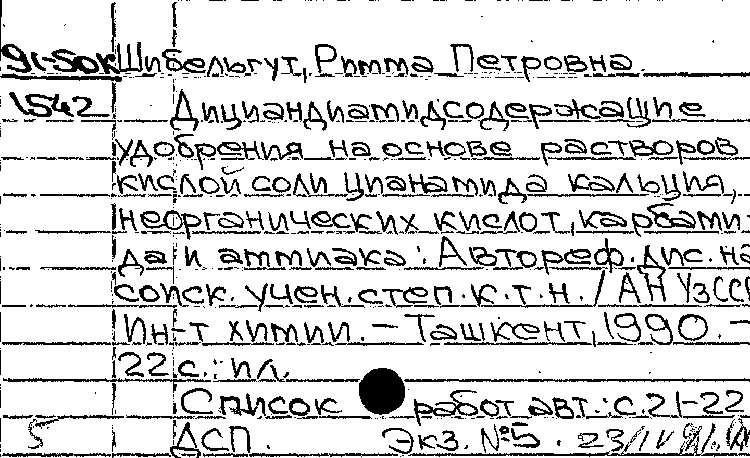 91-5ДК Шибельгут, Римма Петровна.
1542 Дициандиамидсодержащие
удобрения на основе растворов
кислой соли цианамида кальция,
неорганических кислот, карбами-
да и аммиака: Автореф. дис. на
соиск. учен. степ. к.т.н. / АН УзССР
Ин-т химии. – Ташкент, 1990. –
22 с.: ил.
Список работ авт.: с. 21-22
5 ДСП. Экз. №5. 23/IV